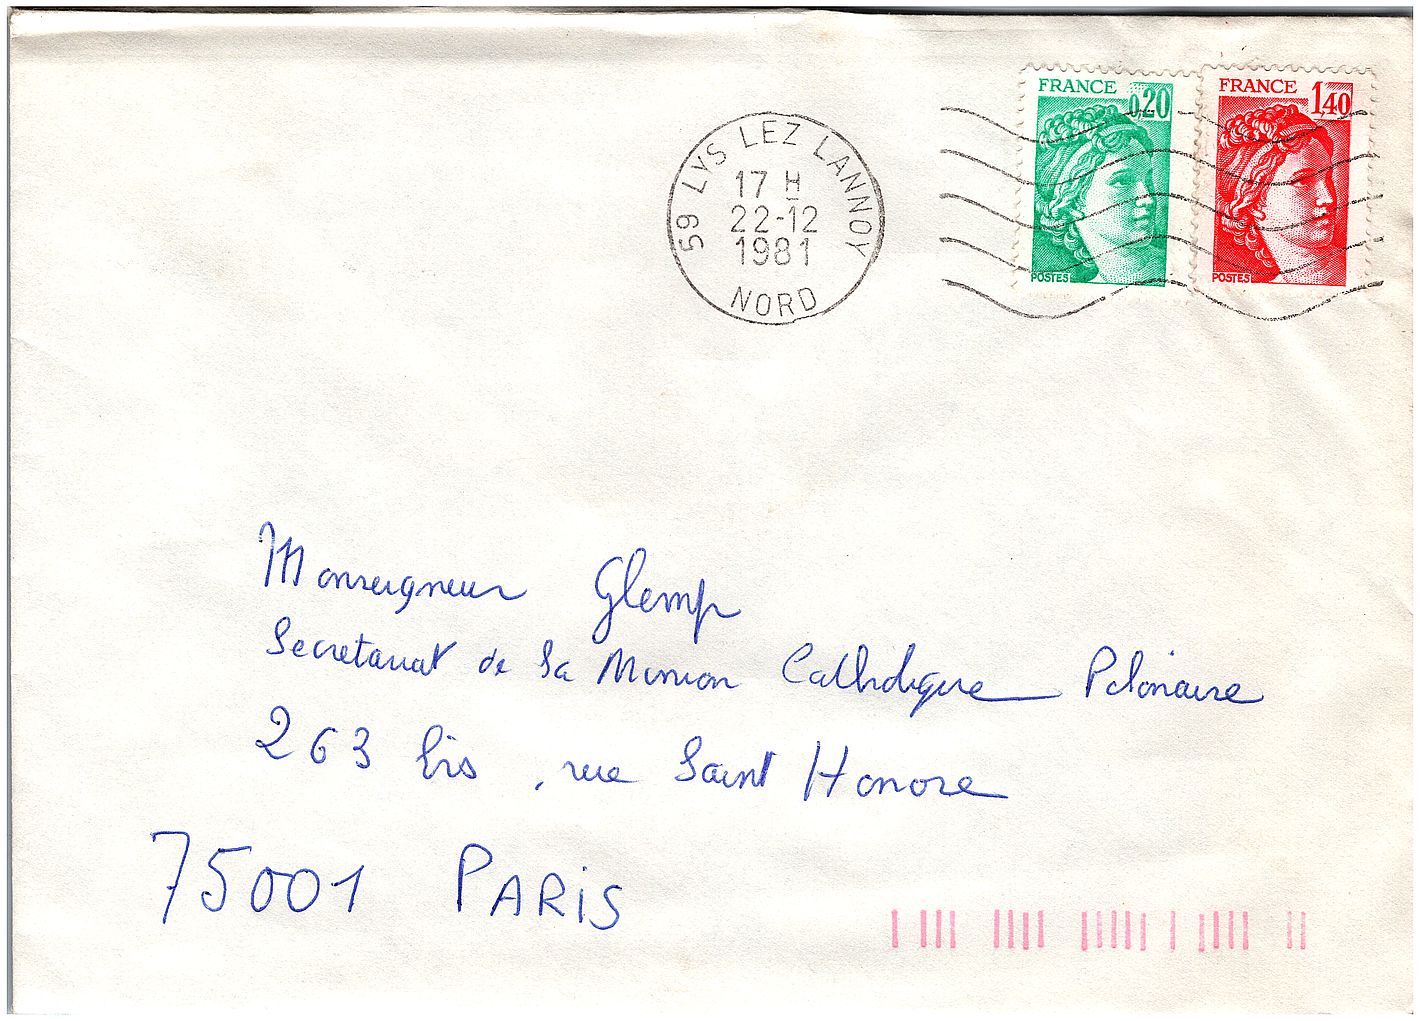 FRANCE 0,20
POSTES
FRANCE 1,40
POSTES
59 LYS LEZ LANNOY
17 H
22-12
1981
NORD
Monseigneur Glemp
Secretariat de la Mission Catholique Polonaise
263 bis, rue Saint Honore
75001 PARIS